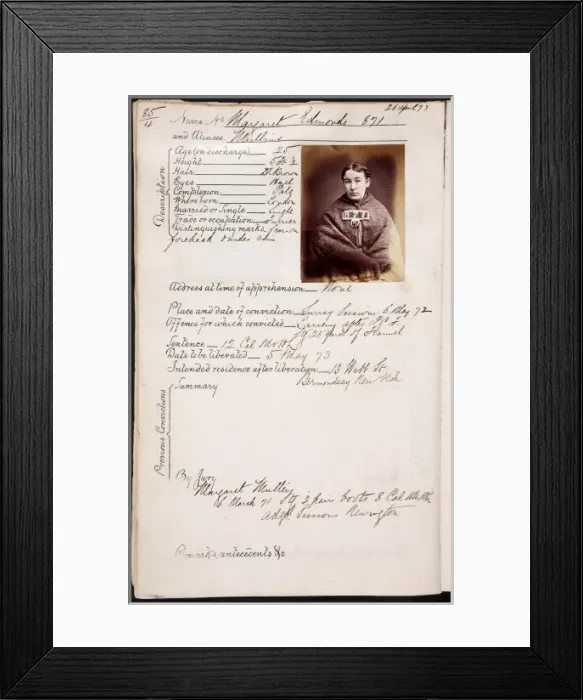 85/4
26 April 73
Name, No. Margaret Edmonds 871
and Aliases Mullins
Description
Age (on discharge) 25
Height 5 ft 2
Hair Dk Brown
Eyes Hazel
Complexion Pale
Where born London
Married or Single Single
Trade or occupation Furrier
Distinguishing marks
forehead & under chin
Address at time of apprehension None
Place and date of conviction Surrey Sessions 6 May 72
Offence for which convicted Larceny after P.C. of F.
25 yards of Flannel
Sentence 12 Cal. Mos. H.L.
Date to be liberated 5 May 73
Intended residence after liberation 13 Webb St
Bermondsey New Rd
Previous Convictions
Summary
By Jury
Margaret Mullins
6 March 71 2 pair boots 8 Cal. Mos. H.L.
Adjd. Sessions Newington
Remarks, antecedents &c